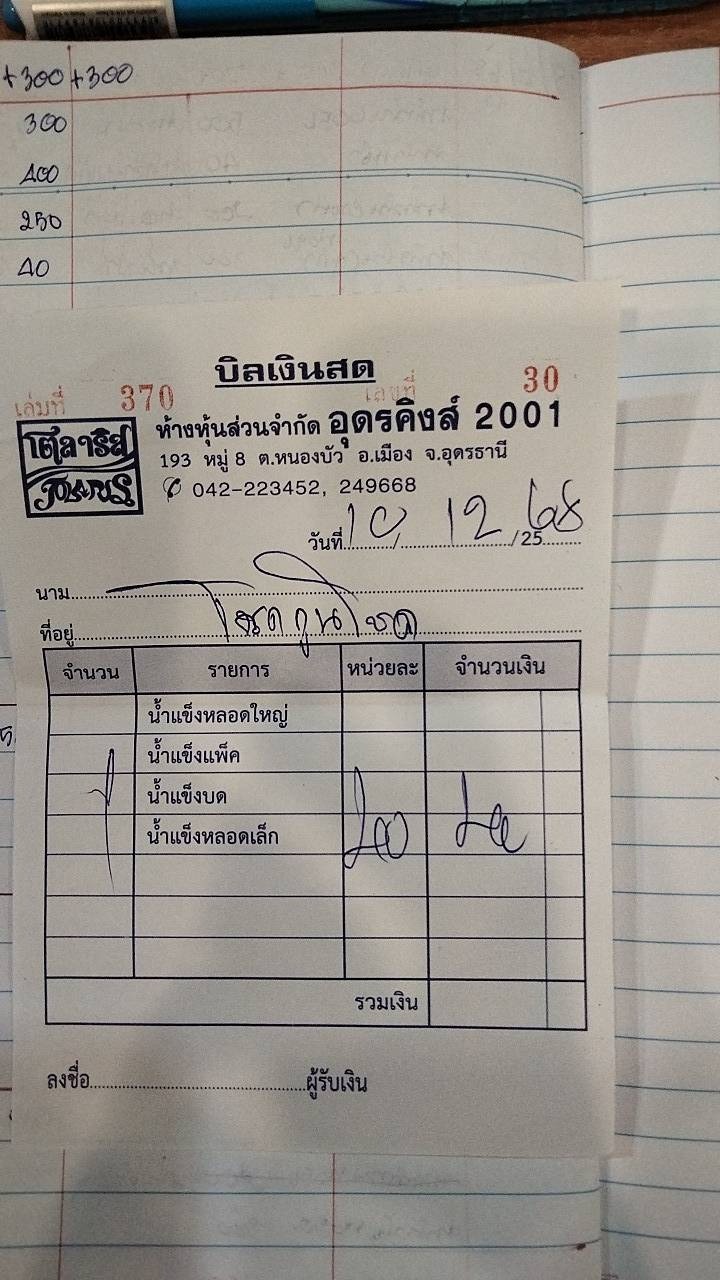 +300 +300
300
400
250
40
บิลเงินสด
เล่มที่ 370 เลขที่ 30
โพลาริส
POLARIS
ห้างหุ้นส่วนจำกัด อุดรคิงส์ 2001
193 หมู่ 8 ต.หนองบัว อ.เมือง จ.อุดรธานี
042-223452, 249668
วันที่ 10 / 12 /25 68
นาม
ที่อยู่
จำนวน รายการ หน่วยละ จำนวนเงิน
น้ำแข็งหลอดใหญ่
น้ำแข็งแพ็ค
น้ำแข็งบด
1 น้ำแข็งหลอดเล็ก
รวมเงิน
ลงชื่อ ผู้รับเงิน